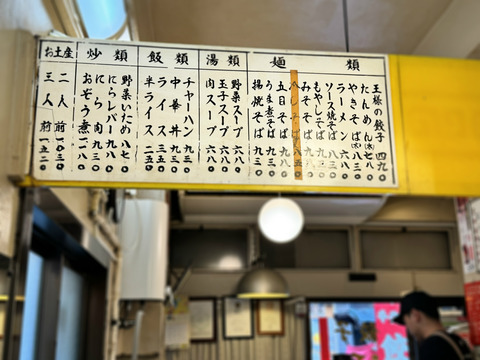 麺類
王様の餃子 四九〇
たんめん(木)七八〇
やきそば(木)八三〇
ラーメン 六八〇
ソース焼そば 八三〇
もやしそば 九三〇
みそ
五目そば 九八〇
うま煮そば 九三〇
揚焼そば 九三〇
湯類
野菜スープ 六八〇
玉子スープ 六八〇
肉スープ 六八〇
飯類
チャーハン 九三〇
中華丼 九三〇
ライス 三五〇
半ライス 二五〇
炒類
野菜いため 八七〇
にらレバー 九八〇
にら肉 九三〇
おぞう煮 一一八〇
お土産
二人前 一〇三〇
三人前 一五二〇